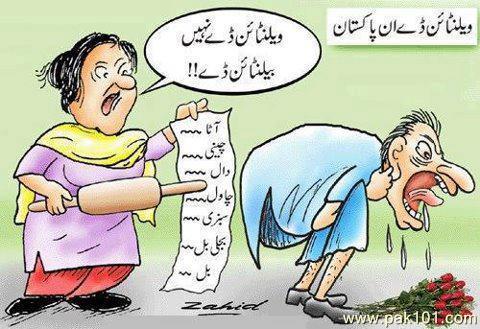 ویلنٹائن ڈے ان پاکستان
ویلنٹائن ڈے نہیں
بیلنٹائن ڈے!!
آٹا
چینی
دال
چاول
سبزی
بجلی بل
بل
Zahid
www.pak101.com